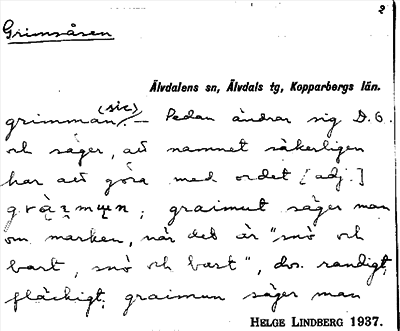 2
Grimsåsen
Älvdalens sn, Älvdals tg, Kopparbergs län.
(sic)
grimmån. — Sedan ändrar sig D.O.
och säger, att namnet säkerligen
har att göra med ordet [adj.]
; graimut säger man
om marken, när det är "snö och
bart, snö och bart", dvs. randigt,
fläckigt. graimun säger man
HELGE LINDBERG 1937.